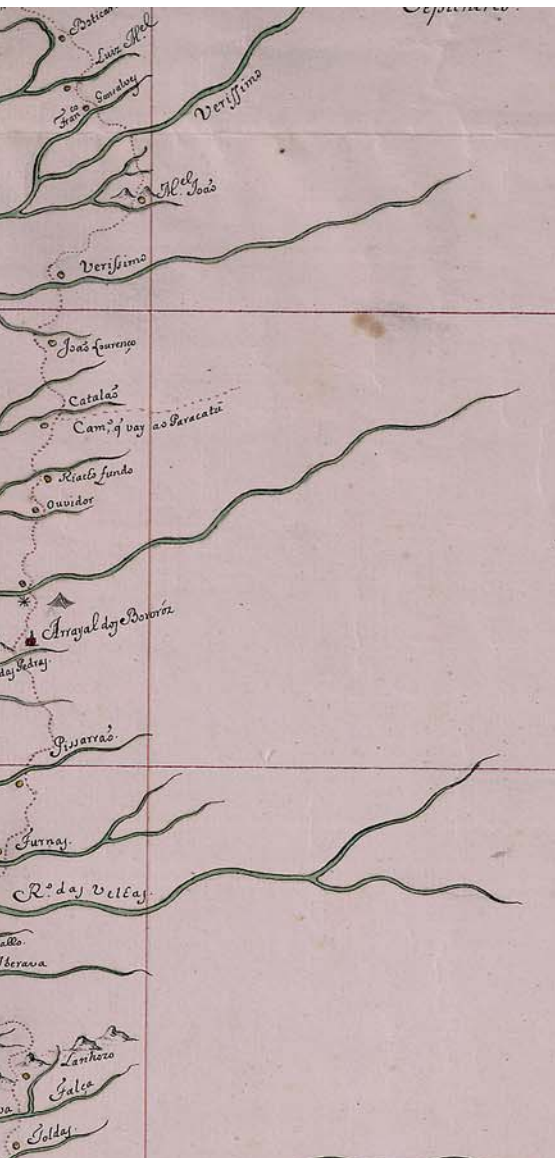 Luiz Mel
Franco Gonsalvez
Verissimo
Mel Joaõ
Verissimo
Joaõ Lourenço
Catalaõ
Camo q' vay ao Paracatû
Riacho fundo
Ouvidor
Arrayal dos Bororóz
das Pedras.
Pissarraõ.
Furnas.
Ro. das Velhas.
Lanhozo
Falça
Toldas.